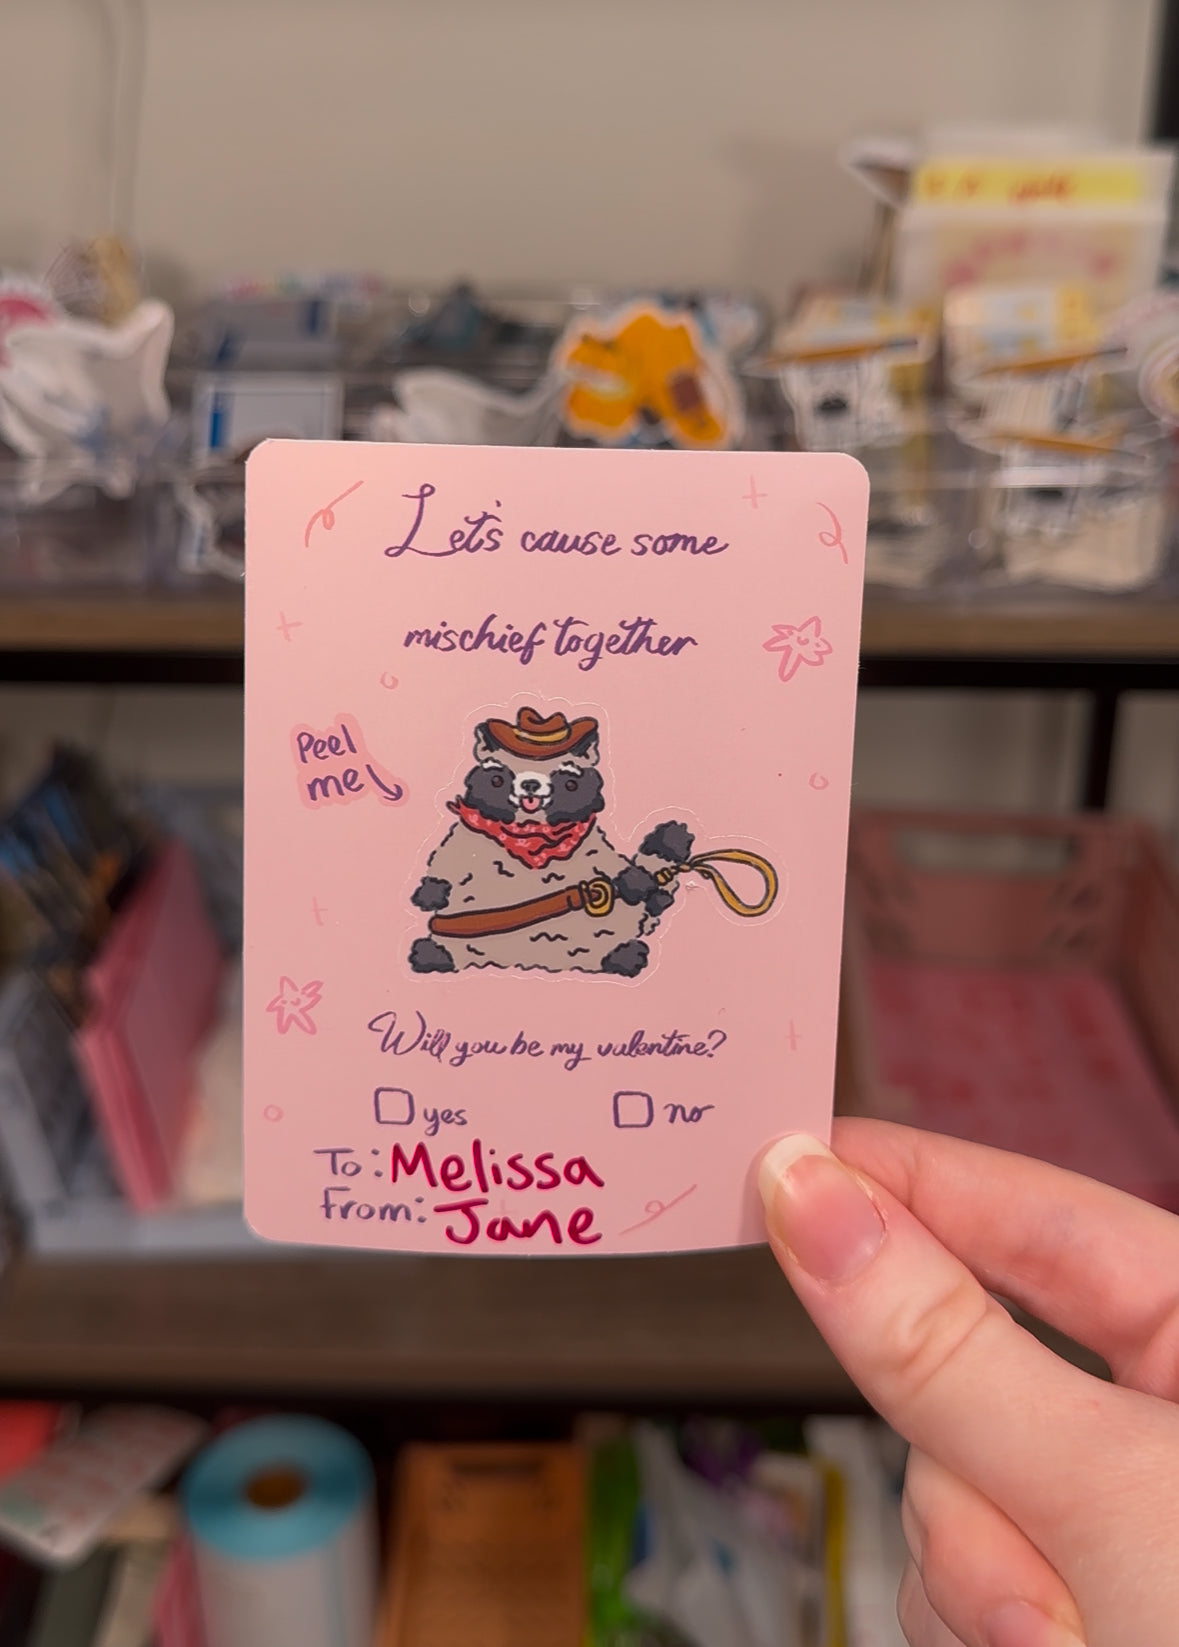 Let's cause some
mischief together
Peel
me
Will you be my valentine?
yes
no
To: Melissa
From: Jane